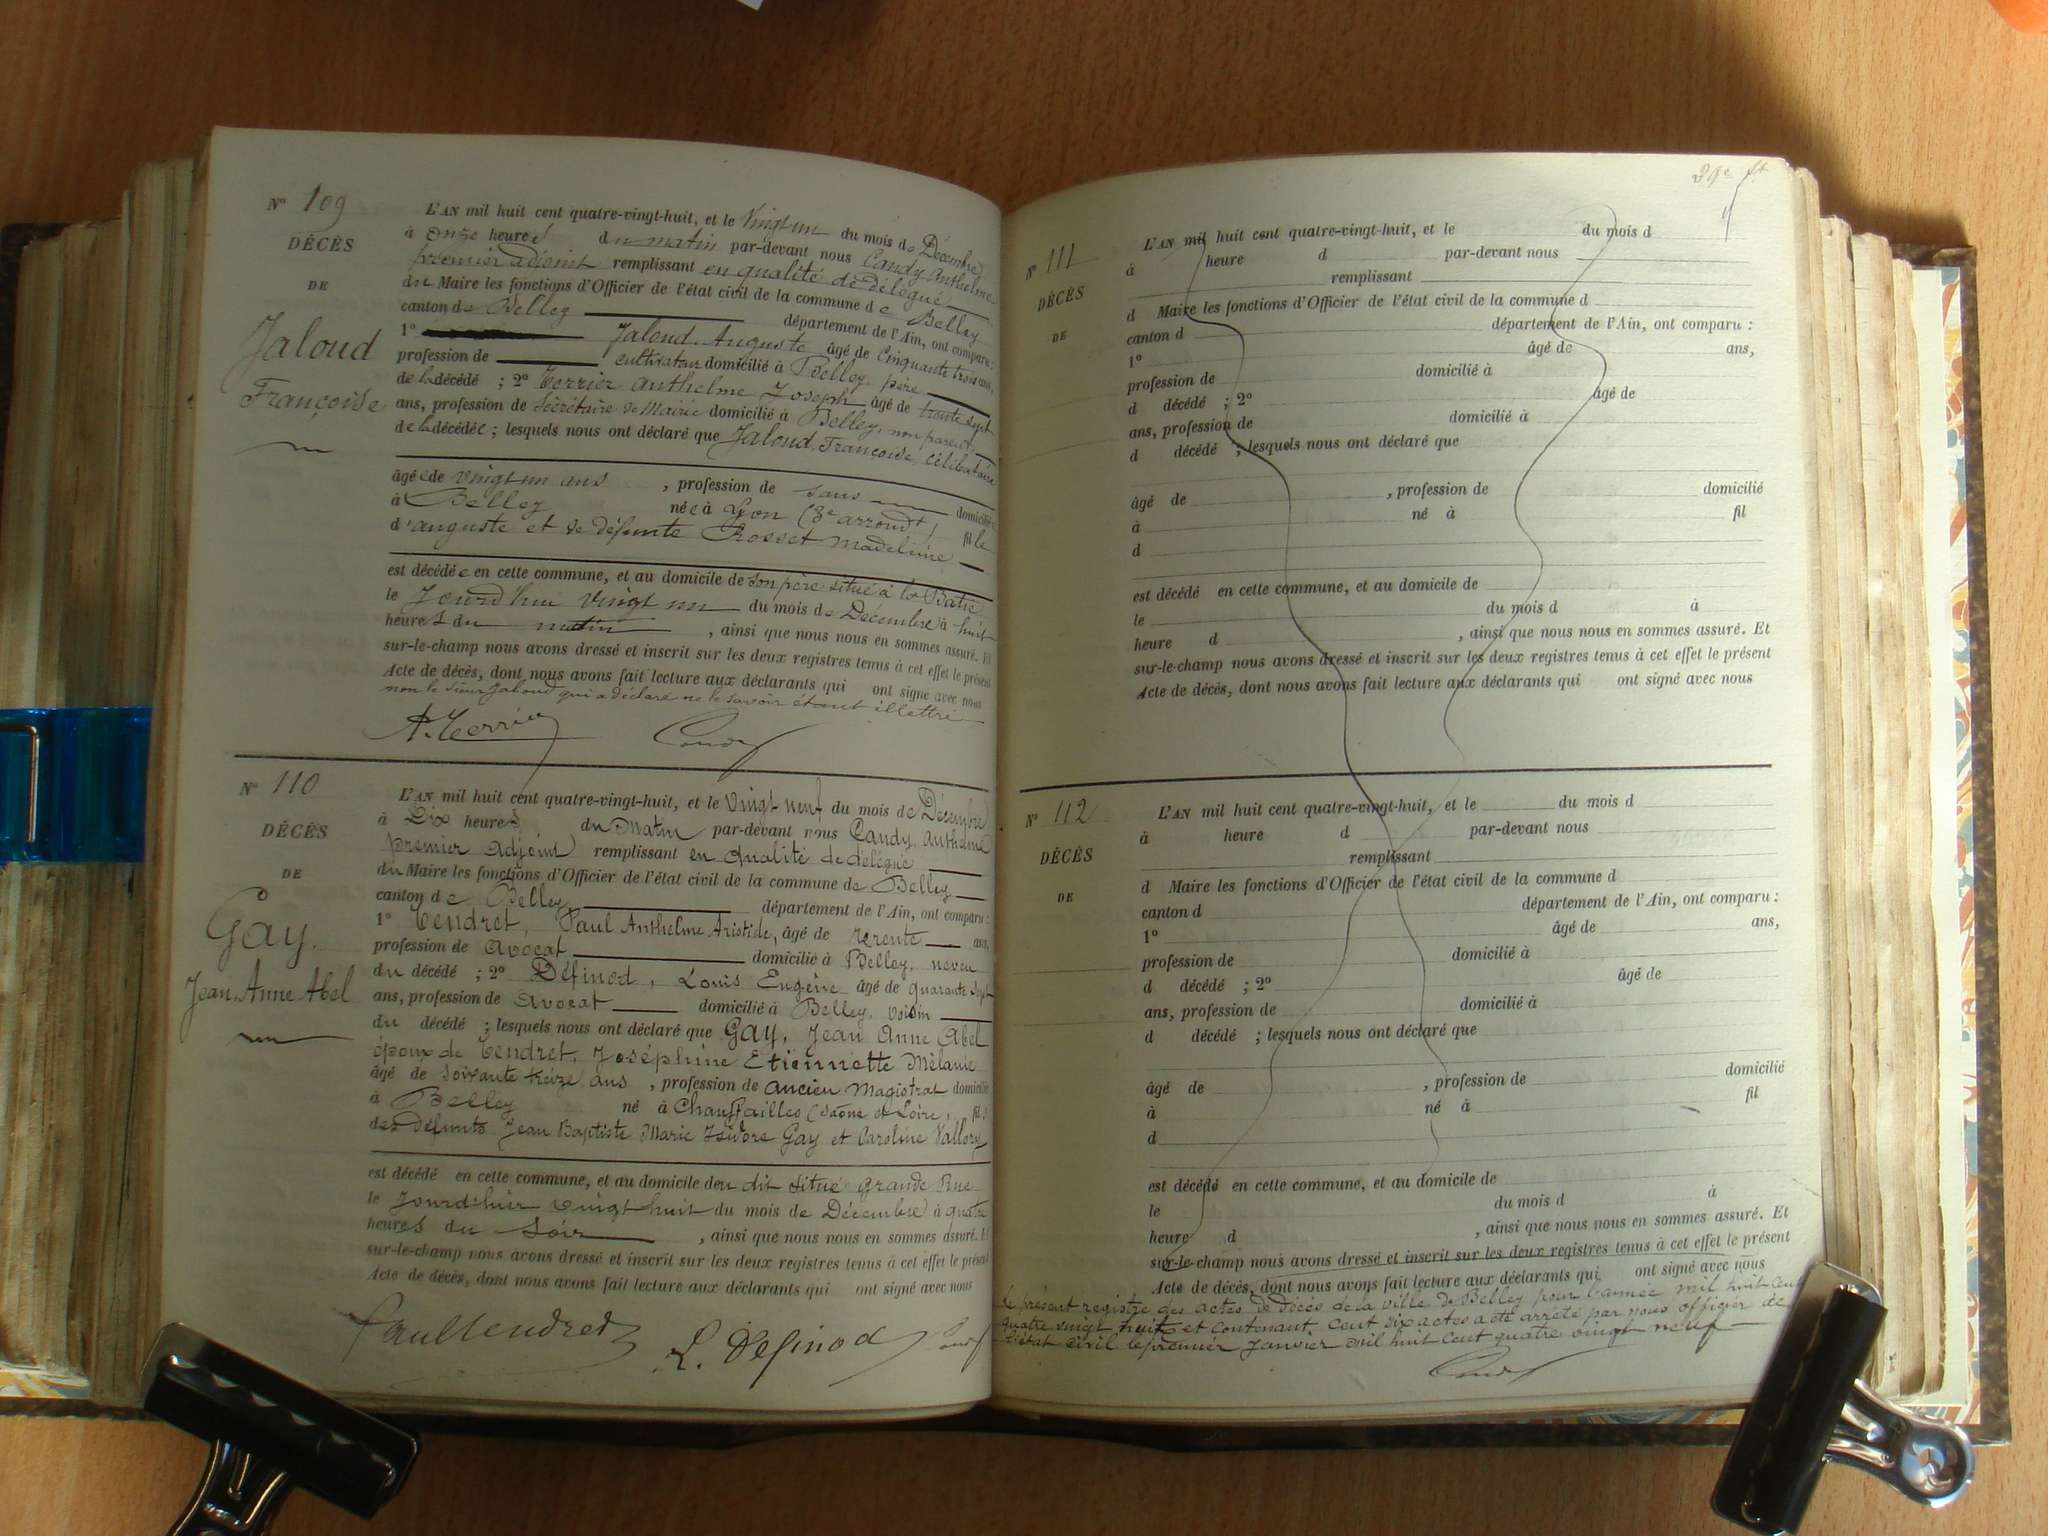 N° 109
DÉCÈS
DE
Jaloud
Françoise
L'AN mil huit cent quatre-vingt-huit, et le Vingt un du mois de Décembre
à onze heures du matin par-devant nous Candy Anthelme
premier adjoint remplissant en qualité de délégué
du Maire les fonctions d'Officier de l'état civil de la commune de Belley
canton de Belley département de l'Ain, ont comparu :
1° Jaloud Auguste âgé de Cinquante trois ans,
profession de cultivateur domicilié à Belley, père
de la décédé ; 2° Terrier Anthelme Joseph âgé de trente sept
ans, profession de Secrétaire de Mairie domicilié à Belley, non parent
de la décédée ; lesquels nous ont déclaré que Jaloud, Françoise, célibataire
âgée de vingt un ans , profession de sans domiciliée
à Belley née à Lyon (3e arrondt) fille
d'auguste et de défunte Rosset Madeleine
est décédée en cette commune, et au domicile de son père situé à la Batie
le Jourd'hui vingt un du mois de Décembre à huit
heures du matin , ainsi que nous nous en sommes assuré. Et
sur-le-champ nous avons dressé et inscrit sur les deux registres tenus à cet effet le présent
Acte de décès, dont nous avons fait lecture aux déclarants qui ont signé avec nous
non le sieur Jaloud qui a déclaré ne le savoir étant illettré
A. Terrier Candy
N° 110
DÉCÈS
DE
Gay.
Jean Anne Abel
L'AN mil huit cent quatre-vingt-huit, et le Vingt neuf du mois de Décembre
à Dix heures du Matin par-devant nous Candy, Anthelme
premier adjoint remplissant en qualité de délégué
du Maire les fonctions d'Officier de l'état civil de la commune de Belley
canton de Belley département de l'Ain, ont comparu :
1° Tendret, Paul Anthelme Aristide, âgé de trente ans,
profession de Avocat domicilié à Belley, neveu
du décédé ; 2° Définod, Louis Eugène âgé de quarante sept
ans, profession de Avocat domicilié à Belley, voisin
du décédé ; lesquels nous ont déclaré que Gay, Jean Anne Abel
époux de Tendret, Joséphine Etiennette Mélanie
âgé de soixante treize ans , profession de ancien Magistrat domicilié
à Belley né à Chauffailles (Saône et Loire, fils
des défunts Jean Baptiste Marie Isidore Gay et Caroline Vallory
est décédé en cette commune, et au domicile du dit situé grande Rue
le Jourd'hier vingt huit du mois de Décembre à quatre
heures du soir , ainsi que nous nous en sommes assuré. Et
sur-le-champ nous avons dressé et inscrit sur les deux registres tenus à cet effet le présent
Acte de décès, dont nous avons fait lecture aux déclarants qui ont signé avec nous
Paul Tendret L. Définod Candy
N° 111
DÉCÈS
DE
L'AN mil huit cent quatre-vingt-huit, et le du mois d
à heure d par-devant nous
remplissant
d Maire les fonctions d'Officier de l'état civil de la commune d
canton d département de l'Ain, ont comparu :
1° âgé de ans,
profession de domicilié à
d décédé ; 2° âgé de
ans, profession de domicilié à
d décédé ; lesquels nous ont déclaré que
âgé de , profession de domicilié
à né à fil
d
est décédé en cette commune, et au domicile de
le du mois d à
heure d , ainsi que nous nous en sommes assuré. Et
sur-le-champ nous avons dressé et inscrit sur les deux registres tenus à cet effet le présent
Acte de décès, dont nous avons fait lecture aux déclarants qui ont signé avec nous
N° 112
DÉCÈS
DE
L'AN mil huit cent quatre-vingt-huit, et le du mois d
à heure d par-devant nous
remplissant
d Maire les fonctions d'Officier de l'état civil de la commune d
canton d département de l'Ain, ont comparu :
1° âgé de ans,
profession de domicilié à
d décédé ; 2° âgé de
ans, profession de domicilié à
d décédé ; lesquels nous ont déclaré que
âgé de , profession de domicilié
à né à fil
d
est décédé en cette commune, et au domicile de
le du mois d à
heure d , ainsi que nous nous en sommes assuré. Et
sur-le-champ nous avons dressé et inscrit sur les deux registres tenus à cet effet le présent
Acte de décès, dont nous avons fait lecture aux déclarants qui ont signé avec nous
Le présent registre des actes de décès de la ville de Belley pour l'année mil huit cent
quatre vingt huit et contenant cent dix actes a été arrêté par nous officier de
l'état civil le premier Janvier mil huit cent quatre vingt neuf
Candy